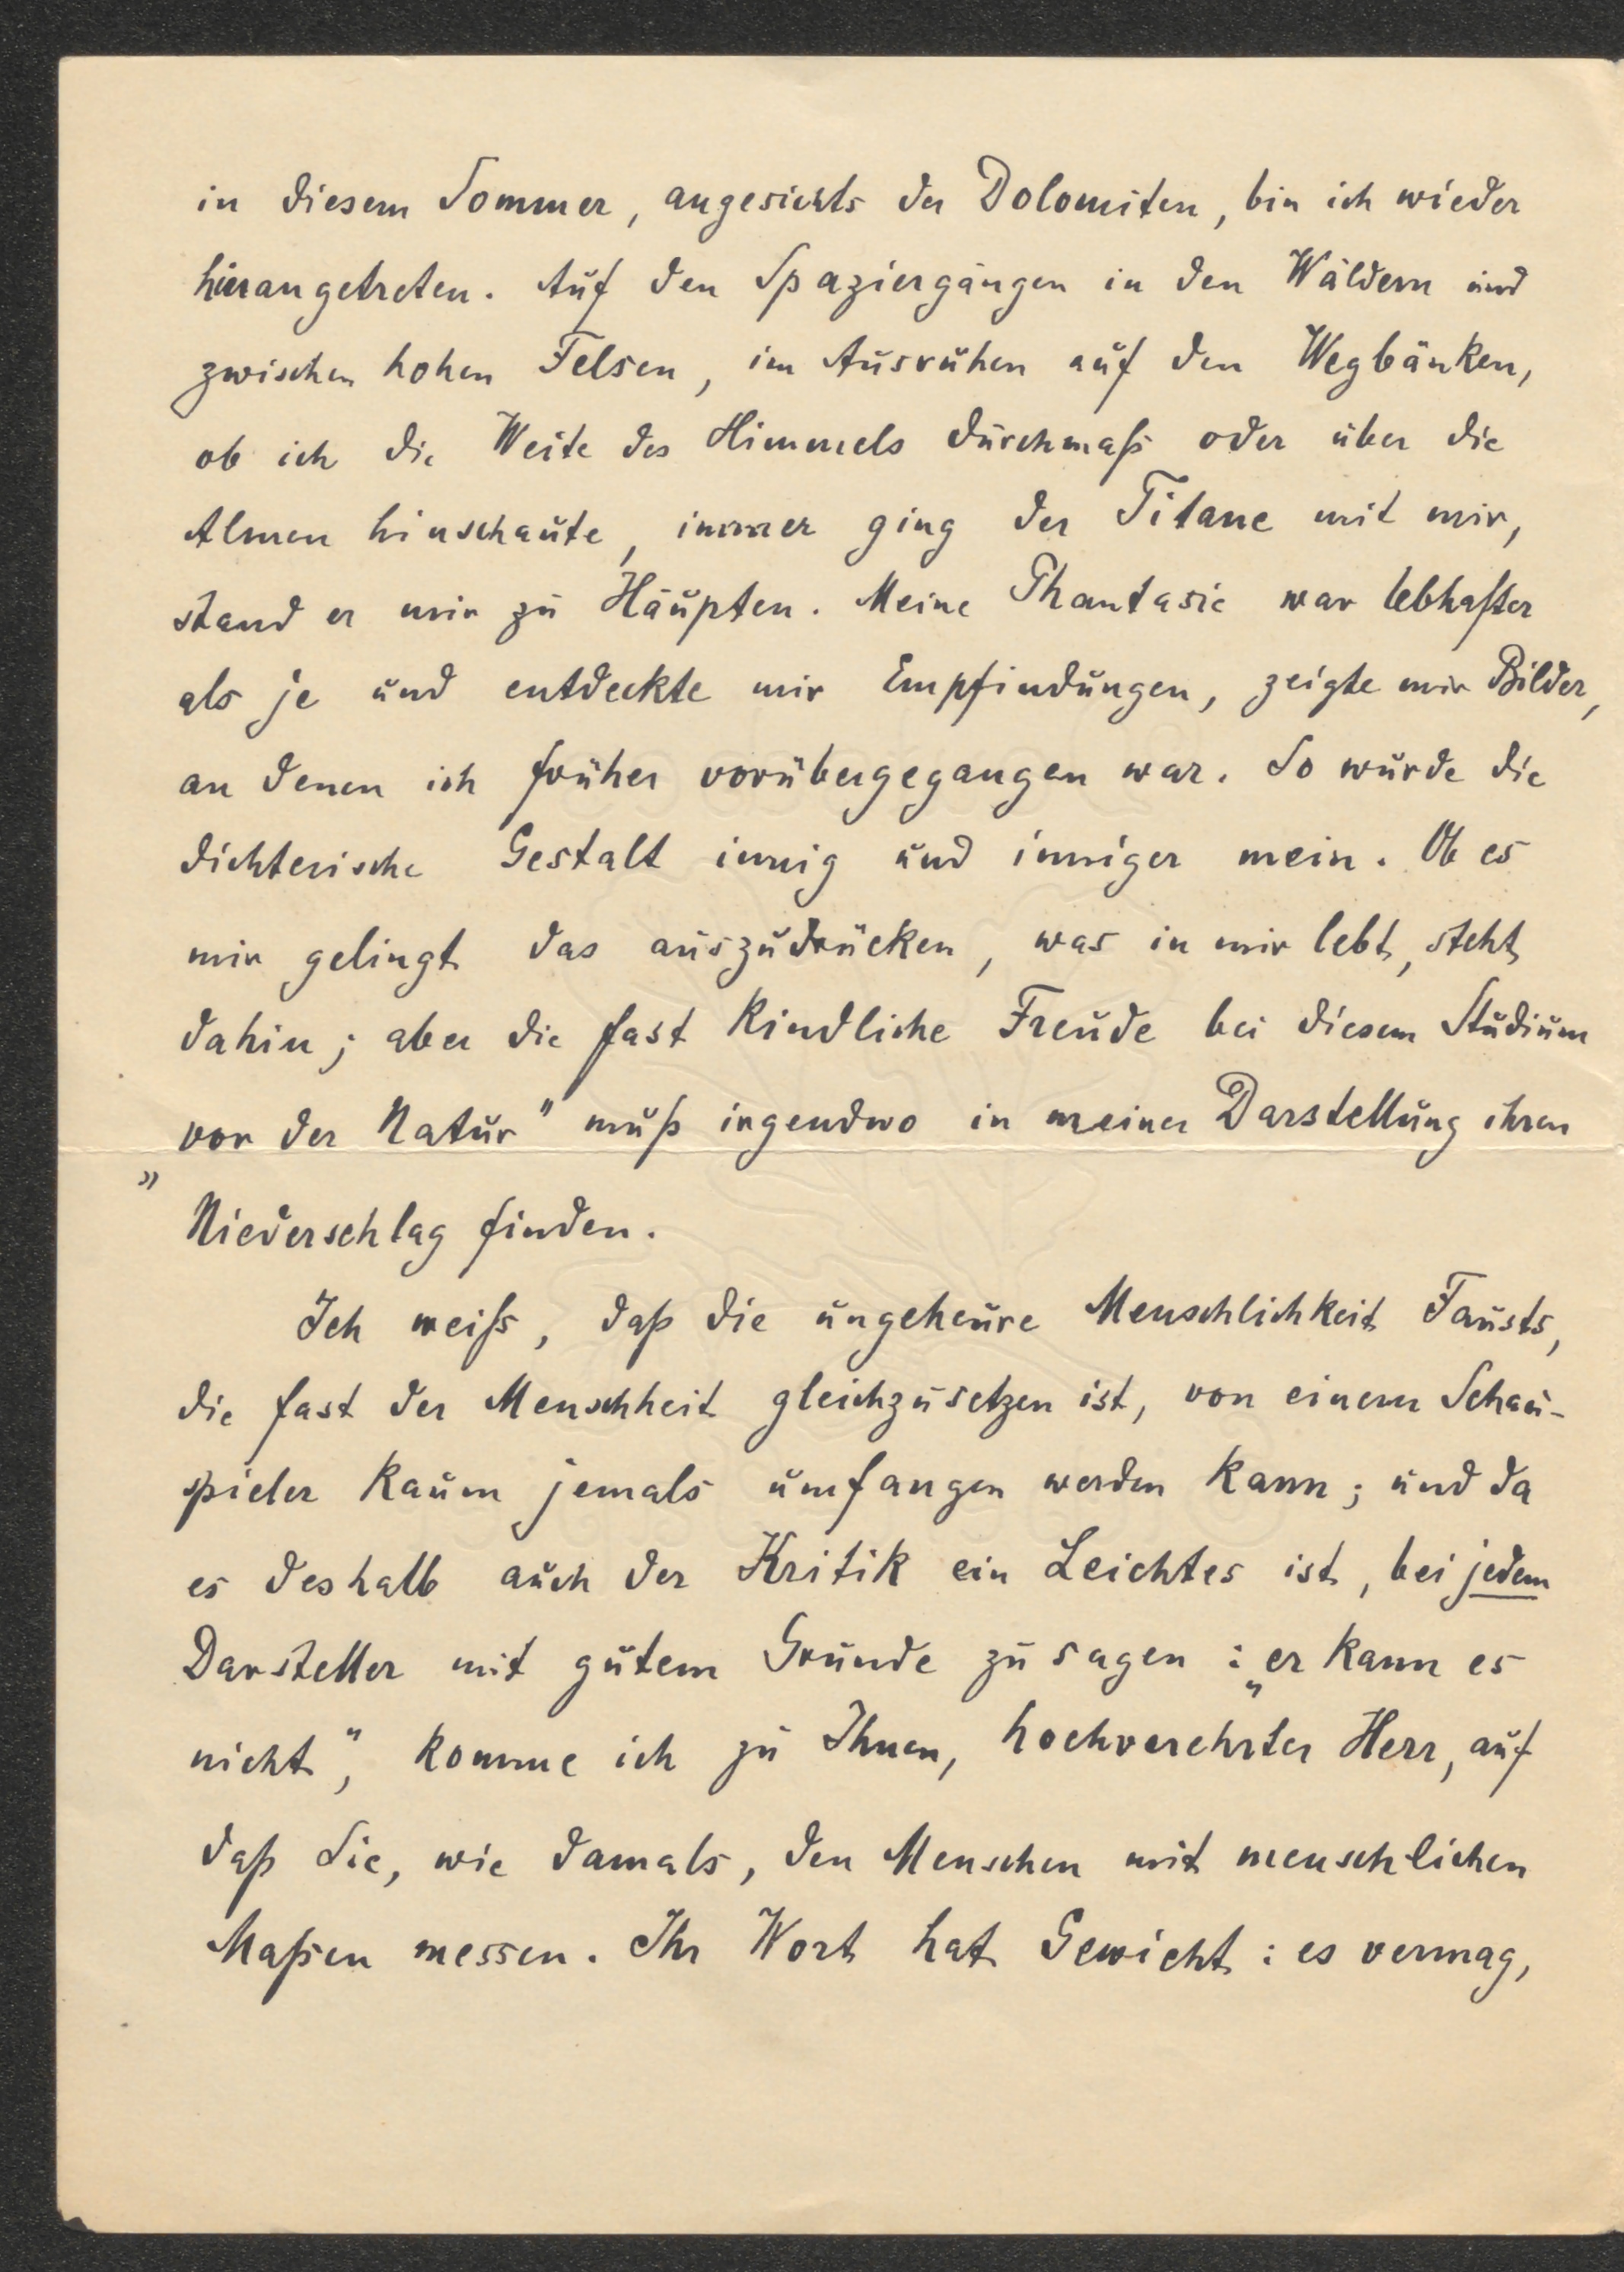 in diesem Sommer, angesichts der Dolomiten, bin ich wieder
hierangetreten. Auf den Spaziergängen in den Wäldern und
zwischen hohen Felsen, im Ausruhen auf den Wegbänken,
ob ich die Weite des Himmels durchmaß oder über die
Almen hinschaute, immer ging der Titane mit mir,
stand er mir zu Häupten. Meine Phantasie war lebhafter
als je und entdeckte mir Empfindungen, zeigte mir Bilder,
an denen ich früher vorübergegangen war. So wurde die
dichterische Gestalt innig und inniger mein. Ob es
mir gelingt das auszudrücken, was in mir lebt, steht
dahin; aber die fast kindliche Freude bei diesem Studium
„vor der Natur" muß irgendwo in meiner Darstellung ihren
Niederschlag finden.
Ich weiß, daß die ungeheure Menschlichkeit Fausts,
die fast der Menschheit gleichzusetzen ist, von einem Schau-
spieler kaum jemals umfangen werden kann; und da
es deshalb auch der Kritik ein Leichtes ist, bei jedem
Darsteller mit gutem Grunde zu sagen: „er kann es
nicht", komme ich zu Ihnen, hochverehrter Herr, auf
daß Sie, wie damals, den Menschen mit menschlichen
Maßen messen. Ihr Wort hat Gewicht: es vermag,